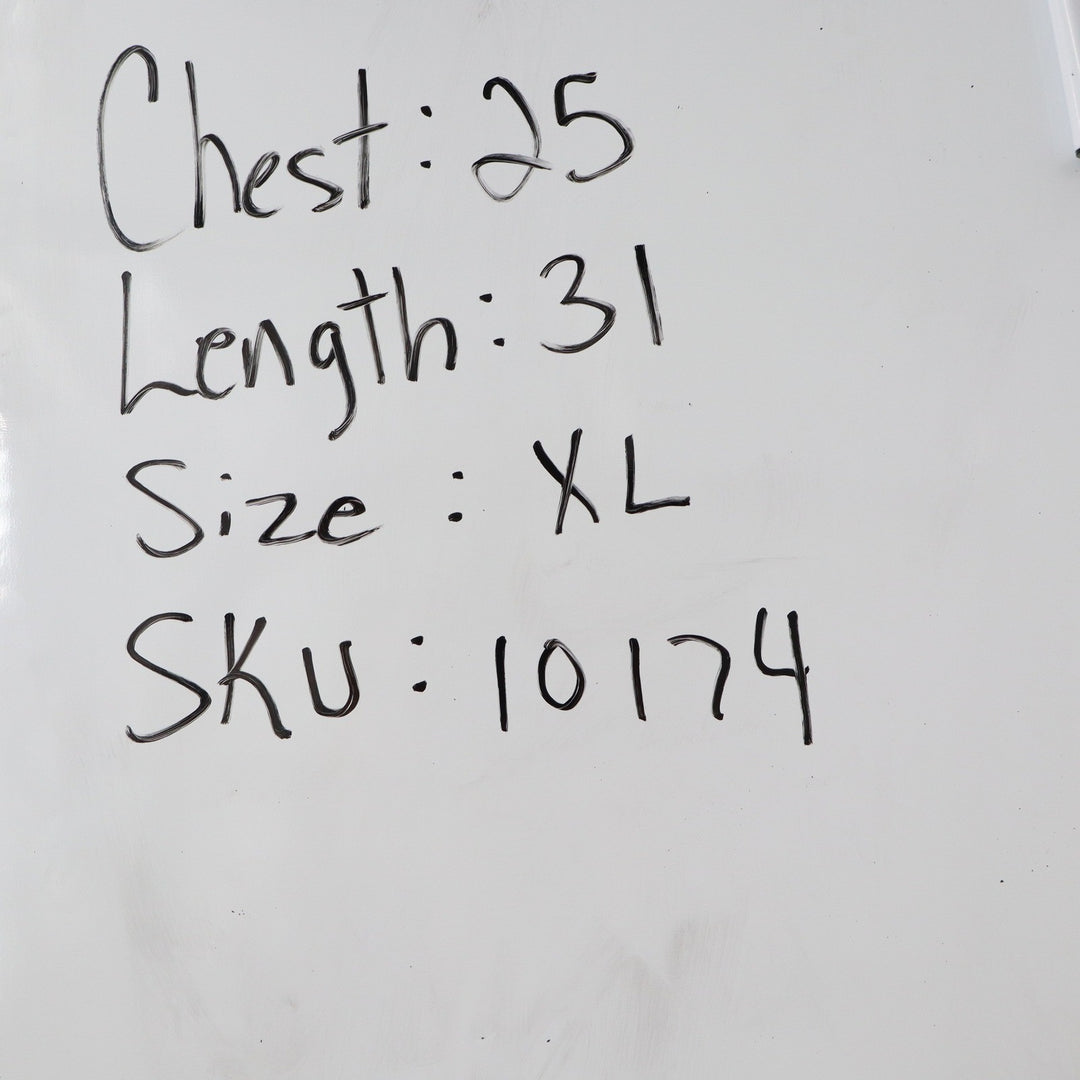 Chest: 25
Length: 31
Size: XL
SKU: 10174